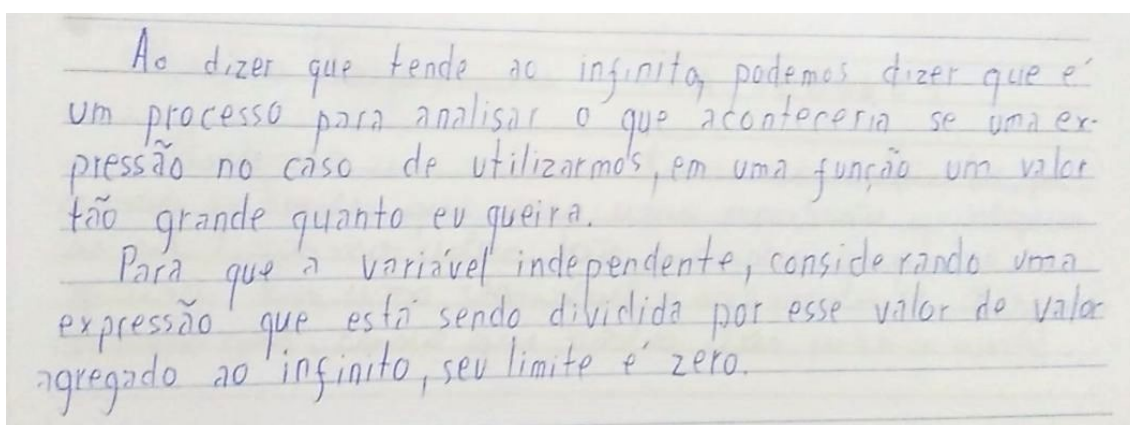 Ao dizer que tende ao infinito, podemos dizer que é
um processo para analisar o que aconteceria se uma ex-
pressão no caso de utilizarmos, em uma função um valor
tão grande quanto eu queira.
Para que a variável independente, considerando uma
expressão que está sendo dividida por esse valor de valor
agregado ao infinito, seu limite é zero.